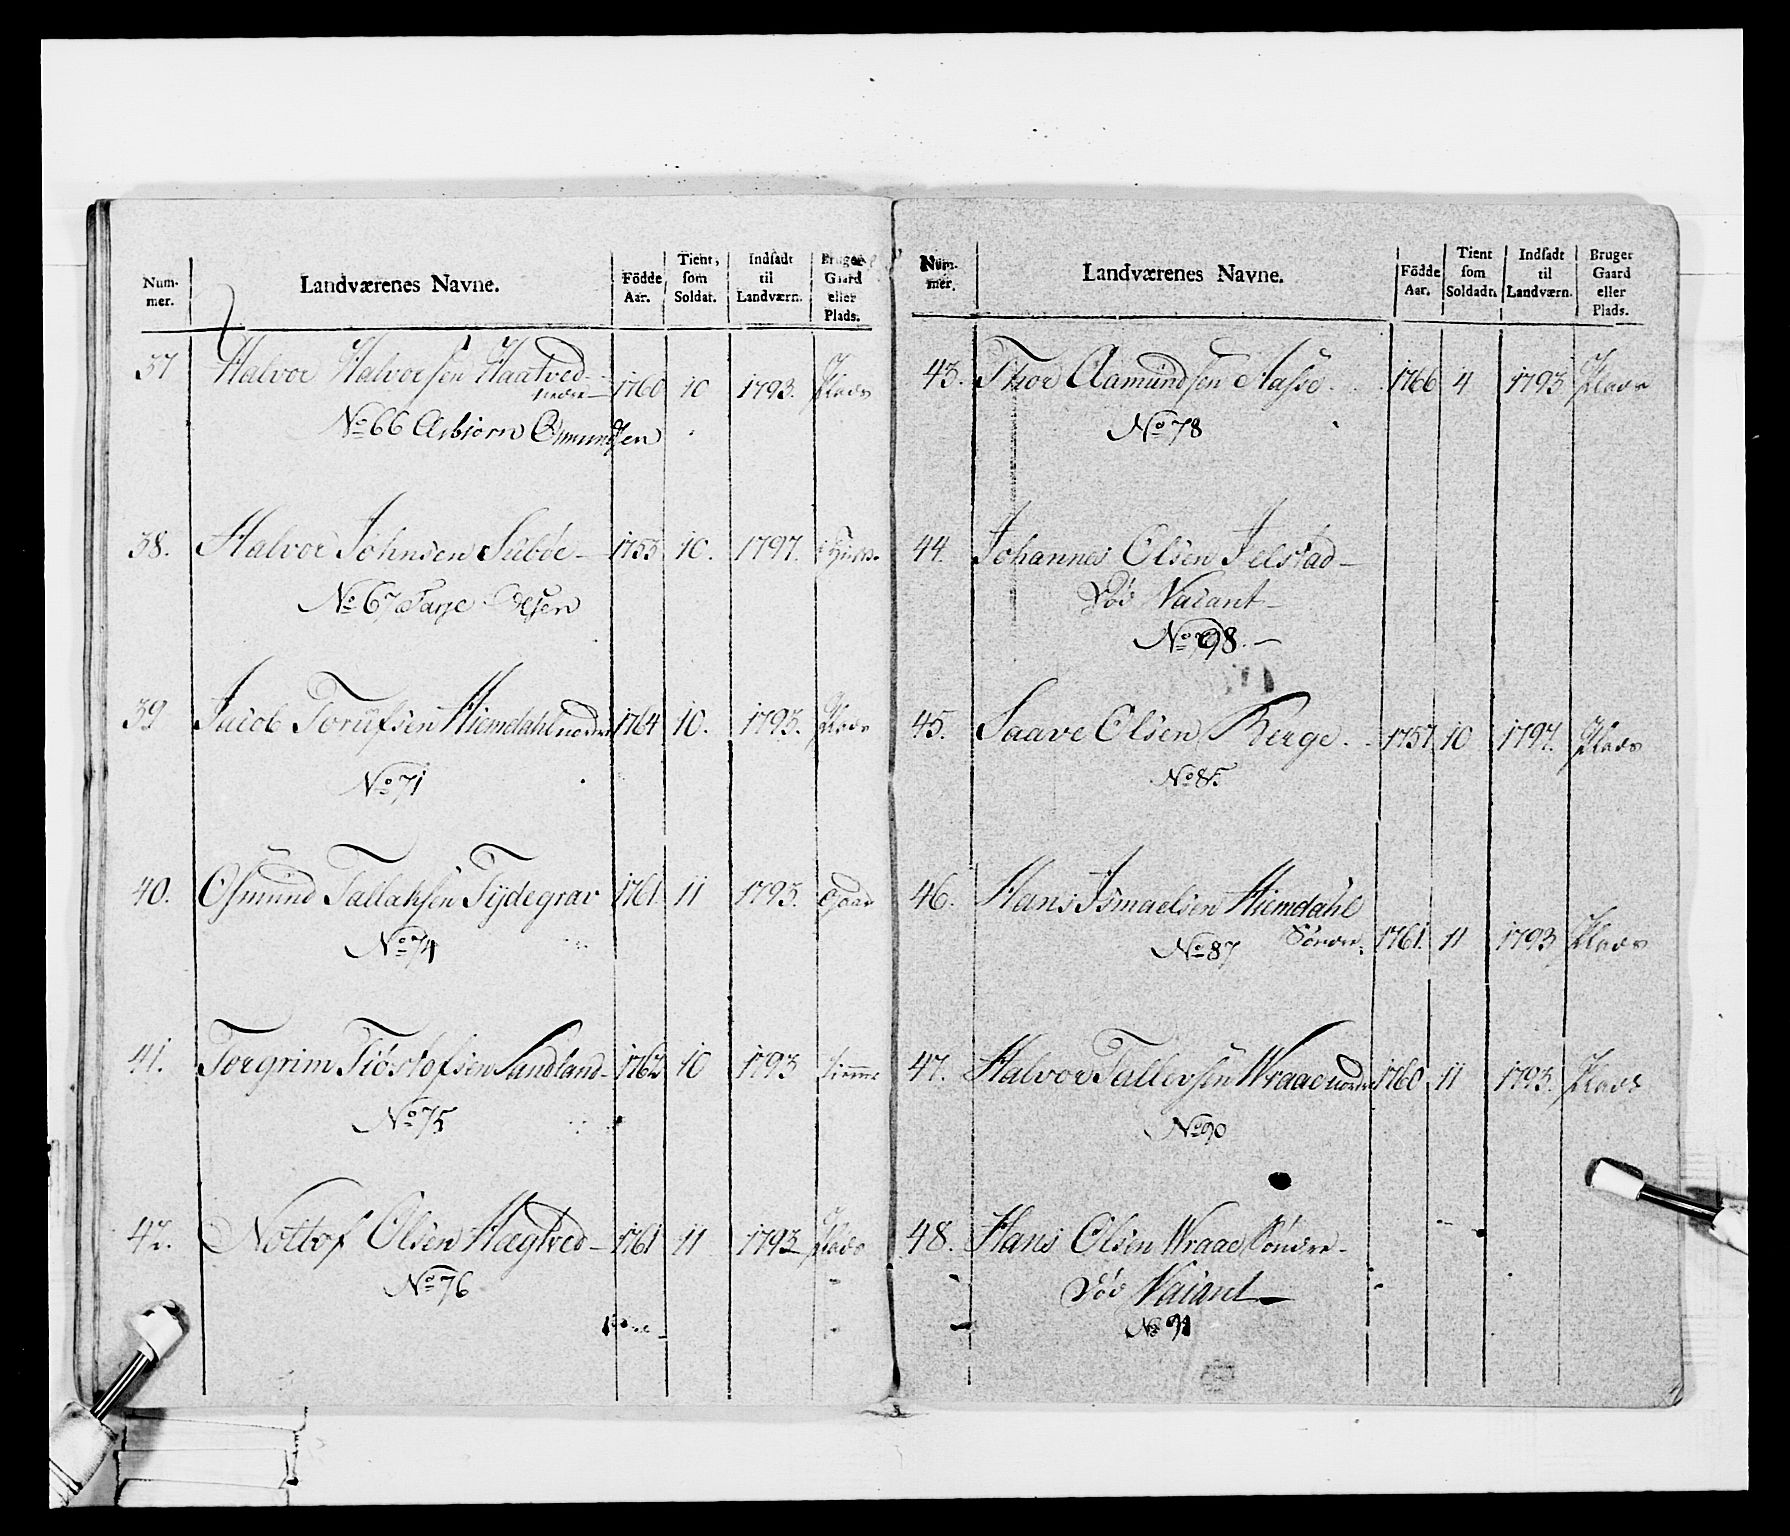 Num-
mer.
Landværenes Navne.
Födde
Aar.
Tient,
som
Soldat.
Indsadt
til
Landværn.
Bruger
Gaard
eller
Plads.
37 Halvor Halvorsen Haatved 1760 10 1793. Plads
No 66 Asbiorn Osmundsen
38. Halvor Johnsen Luböe 1753 10. 1797.
No 67 Tarje Olsen
39 Jacob Torüfsen Hiemdahl nordre 1764 10. 1793. Plads
No 71
40. Osmund Tallaksen Tydegrav 1761. 11 1793. Gaard
No 74
41. Torgrim Tiöstofsen Sundland 1762 10 1793
No 75
42. Nottof Olsen Hægtved 1761 11 1793 Plads
No 76
Num-
mer.
Landværenes Navne.
Födde
Aar.
Tient
som
Soldadt.
Indsadt
til
Landværn.
Bruger
Gaard
eller
Plads.
43. Thor Aamundsen Aasse 1766 4 1793 Plads
No 78
44. Johannes Olsen Jelstad
Död Vacant
No 98.
45. Saave Olsen Berge 1757 10 1797. Plads
No 85
46. Hans Ismaelsen Hiemdahl
Söndre 1761. 11 1793 Plads
No 87
47. Halvor Tallevsen Wraae nordre 1760 11 1793. Plads
No 90
48. Hans Olsen Wraae Söndre
Död Vacant
No 91